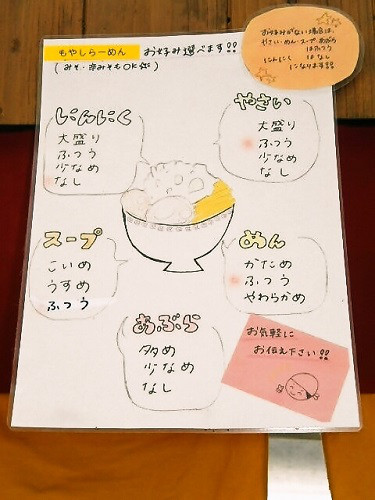 もやしらーめん お好み選べます!!
(みそ・辛みそもOKです)
お好みがない場合は、
やさい・めん・スープ・あぶら
はふつう
にんにく は なし
になります
にんにく
大盛り
ふつう
少なめ
なし
やさい
大盛り
ふつう
少なめ
なし
スープ
こいめ
うすめ
ふつう
めん
かため
ふつう
やわらかめ
あぶら
多め
少なめ
なし
お気軽に
お伝え下さい!!